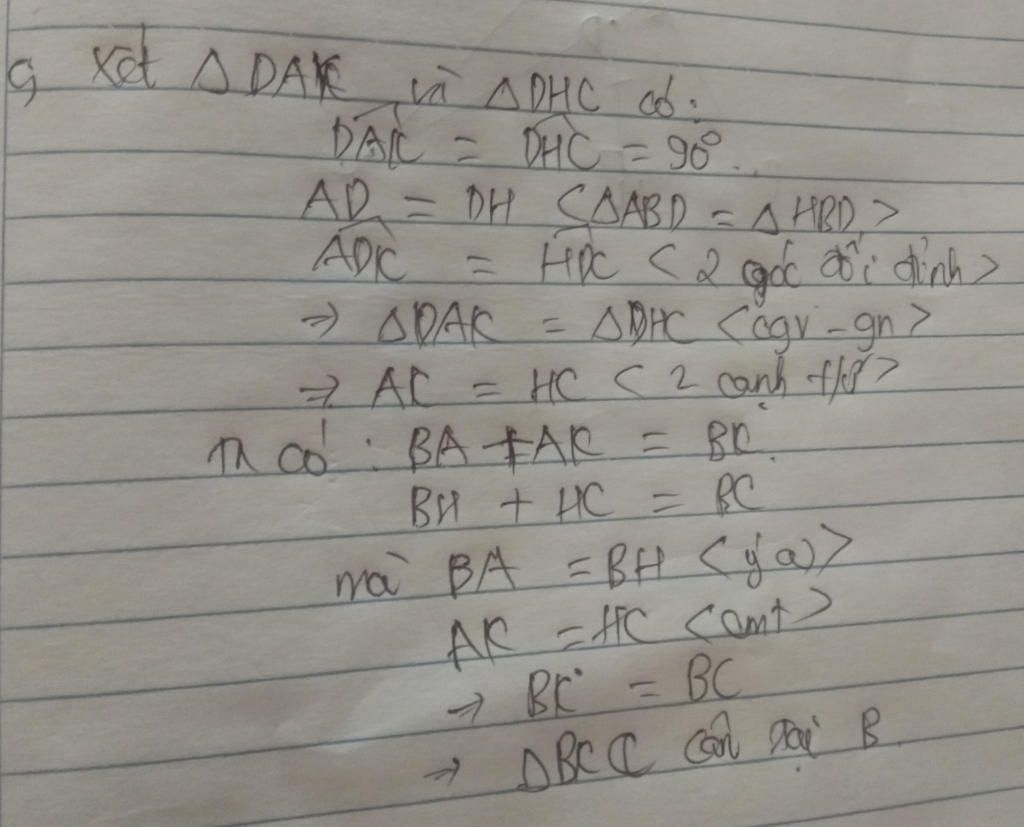 c, Xét ΔDAK và ΔDHC có:
DAK = DHC = 90°.
AD = DH <ΔABD = ΔHBD>
ADK = HDC <2 góc đối đỉnh>
⇒ ΔDAK = ΔDHC <cgv - gn>
⇒ AK = HC <2 cạnh t/ứ>
Ta có: BA + AK = BK.
BH + HC = BC
mà BA = BH <ý a)>
AK = HC <cmt>
⇒ BK = BC
⇒ ΔBKC cân tại B.